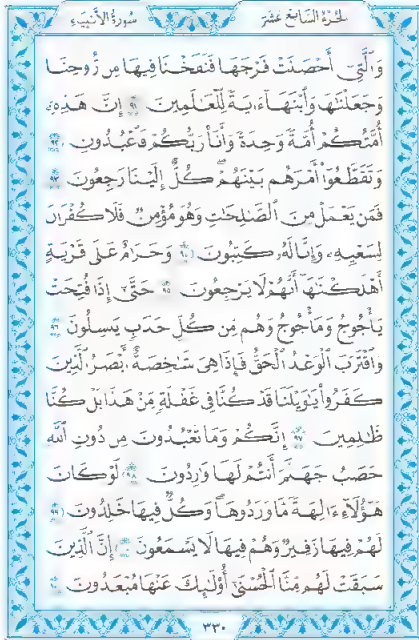 سُورَةُ الأَنبِيَاءِ
الجُزْءُ السَّابِعَ عَشَرَ
وَالَّتِي أَحْصَنَتْ فَرْجَهَا فَنَفَخْنَا فِيهَا مِن رُّوحِنَا
وَجَعَلْنَاهَا وَابْنَهَا آيَةً لِّلْعَالَمِينَ ٩١ إِنَّ هَذِهِ
أُمَّتُكُمْ أُمَّةً وَاحِدَةً وَأَنَا رَبُّكُمْ فَاعْبُدُونِ ٩٢
وَتَقَطَّعُوا أَمْرَهُم بَيْنَهُمْ كُلٌّ إِلَيْنَا رَاجِعُونَ ٩٣
فَمَن يَعْمَلْ مِنَ الصَّالِحَاتِ وَهُوَ مُؤْمِنٌ فَلَا كُفْرَانَ
لِسَعْيِهِ وَإِنَّا لَهُ كَاتِبُونَ ٩٤ وَحَرَامٌ عَلَى قَرْيَةٍ
أَهْلَكْنَاهَا أَنَّهُمْ لَا يَرْجِعُونَ ٩٥ حَتَّى إِذَا فُتِحَتْ
يَأْجُوجُ وَمَأْجُوجُ وَهُم مِّن كُلِّ حَدَبٍ يَنسِلُونَ ٩٦
وَاقْتَرَبَ الْوَعْدُ الْحَقُّ فَإِذَا هِيَ شَاخِصَةٌ أَبْصَارُ الَّذِينَ
كَفَرُوا يَا وَيْلَنَا قَدْ كُنَّا فِي غَفْلَةٍ مِّنْ هَذَا بَلْ كُنَّا
ظَالِمِينَ ٩٧ إِنَّكُمْ وَمَا تَعْبُدُونَ مِن دُونِ اللَّهِ
حَصَبُ جَهَنَّمَ أَنتُمْ لَهَا وَارِدُونَ ٩٨ لَوْ كَانَ
هَؤُلَاءِ آلِهَةً مَّا وَرَدُوهَا وَكُلٌّ فِيهَا خَالِدُونَ ٩٩
لَهُمْ فِيهَا زَفِيرٌ وَهُمْ فِيهَا لَا يَسْمَعُونَ ١٠٠ إِنَّ الَّذِينَ
سَبَقَتْ لَهُم مِّنَّا الْحُسْنَى أُولَئِكَ عَنْهَا مُبْعَدُونَ ١٠١
٣٣٠